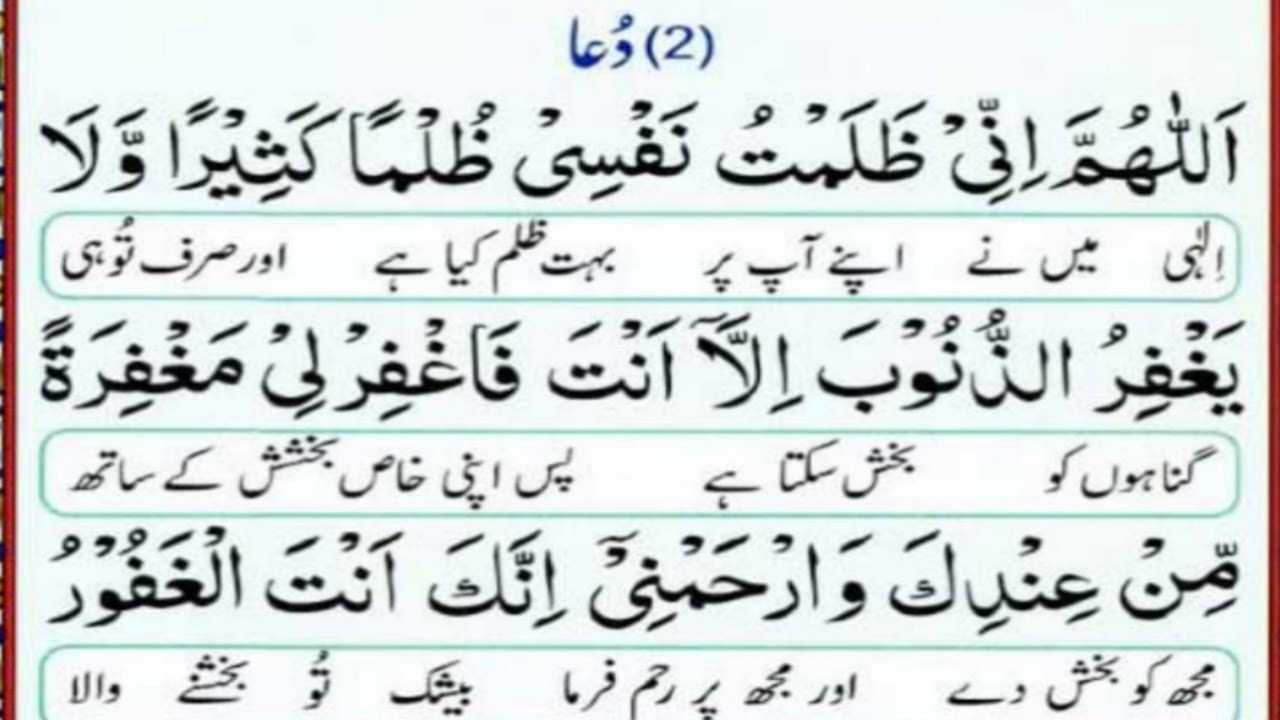 (2) دُعا
اَللّٰهُمَّ اِنِّیْ ظَلَمْتُ نَفْسِیْ ظُلْمًا كَثِیْرًا وَّلَا
اِلٰہی میں نے اپنے آپ پر بہت ظلم کیا ہے اور صرف تُو ہی
یَغْفِرُ الذُّنُوْبَ اِلَّاۤ اَنْتَ فَاغْفِرْ لِیْ مَغْفِرَةً
گناہوں کو بخش سکتا ہے پس اپنی خاص بخشش کے ساتھ
مِّنْ عِنْدِكَ وَارْحَمْنِیْۤ اِنَّكَ اَنْتَ الْغَفُوْرُ
مجھ کو بخش دے اور مجھ پر رحم فرما بیشک تُو بخشنے والا